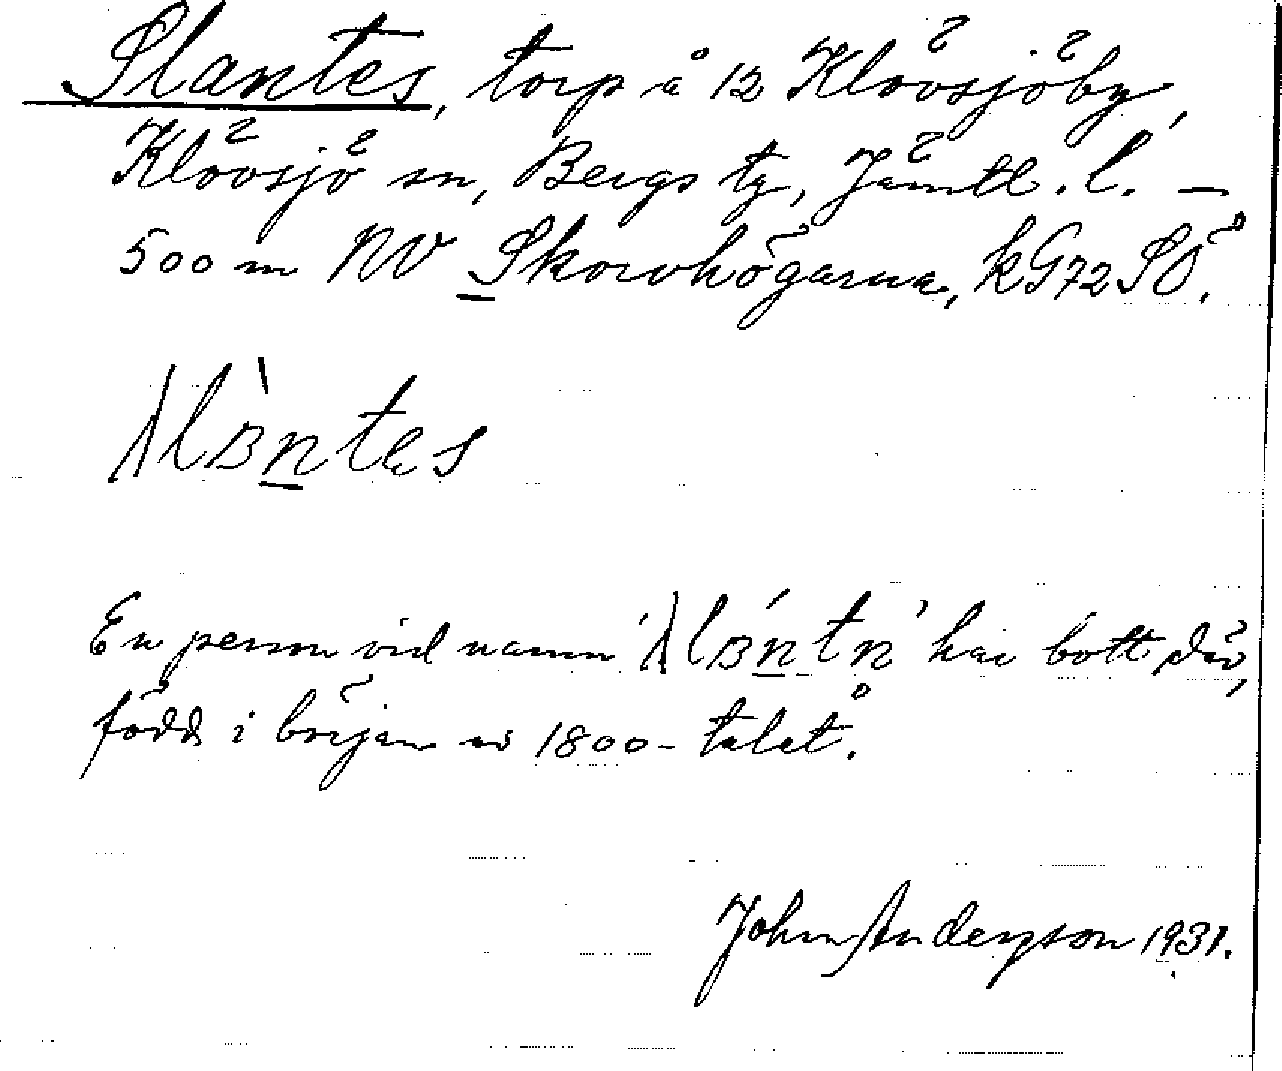 Slantes, torp å 12 Klövsjöby,
Klövsjö sn, Bergs tg, Jämtl. l. —
500 m NV Skorvhögarna, kG72SÖ.
ʃlàntes
En person vid namn 'ʃlántn' har bott där,
född i början av 1800-talet.
John Anderzson 1931.